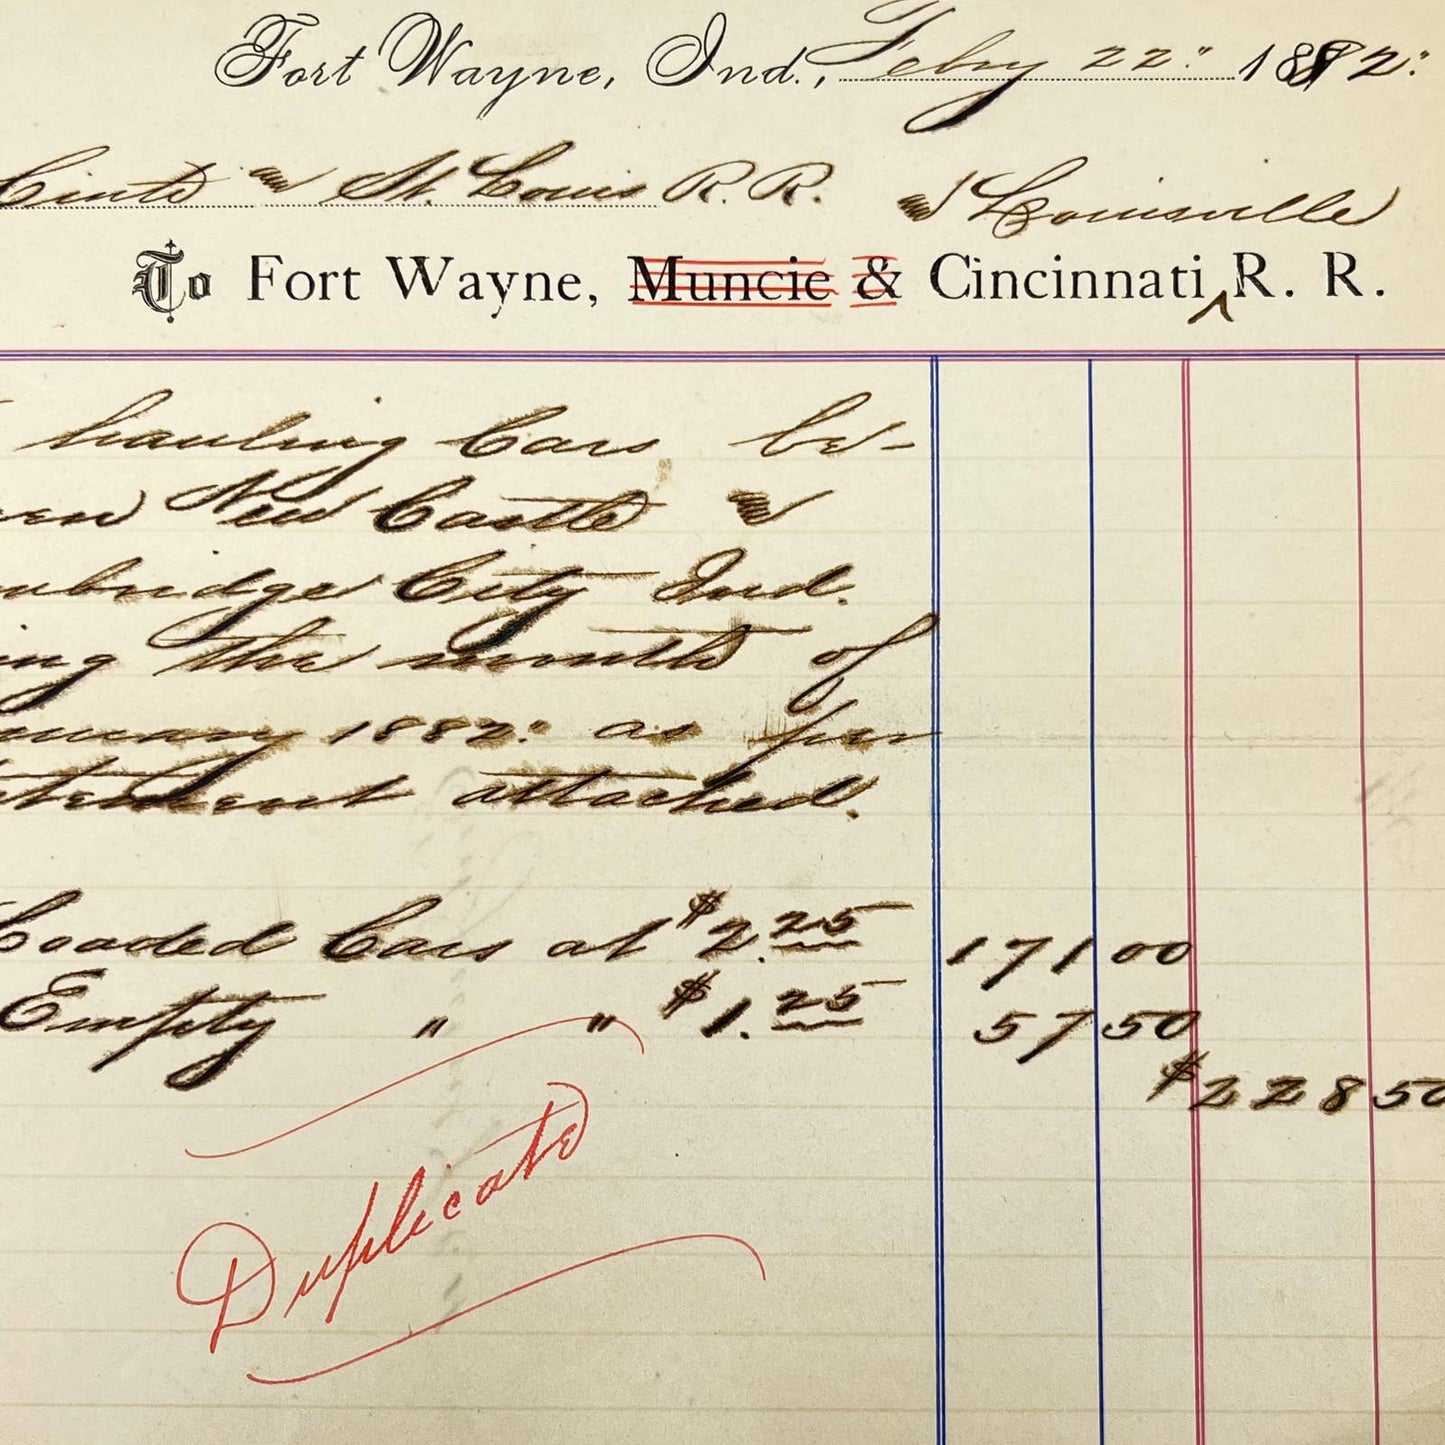 Fort Wayne, Ind., Feby 22" 1882"
Cinti & St. Louis R. R.
& Louisville
To Fort Wayne, Muncie & Cincinnati R. R.
hauling Cars be-
een New Castle &
mbridge City Ind.
ing the month of
nuary 1882" as per
tatement attached.
Loaded Cars at $2.25 171 00
Empty " " $1.25 57 50
$228 50
Duplicate